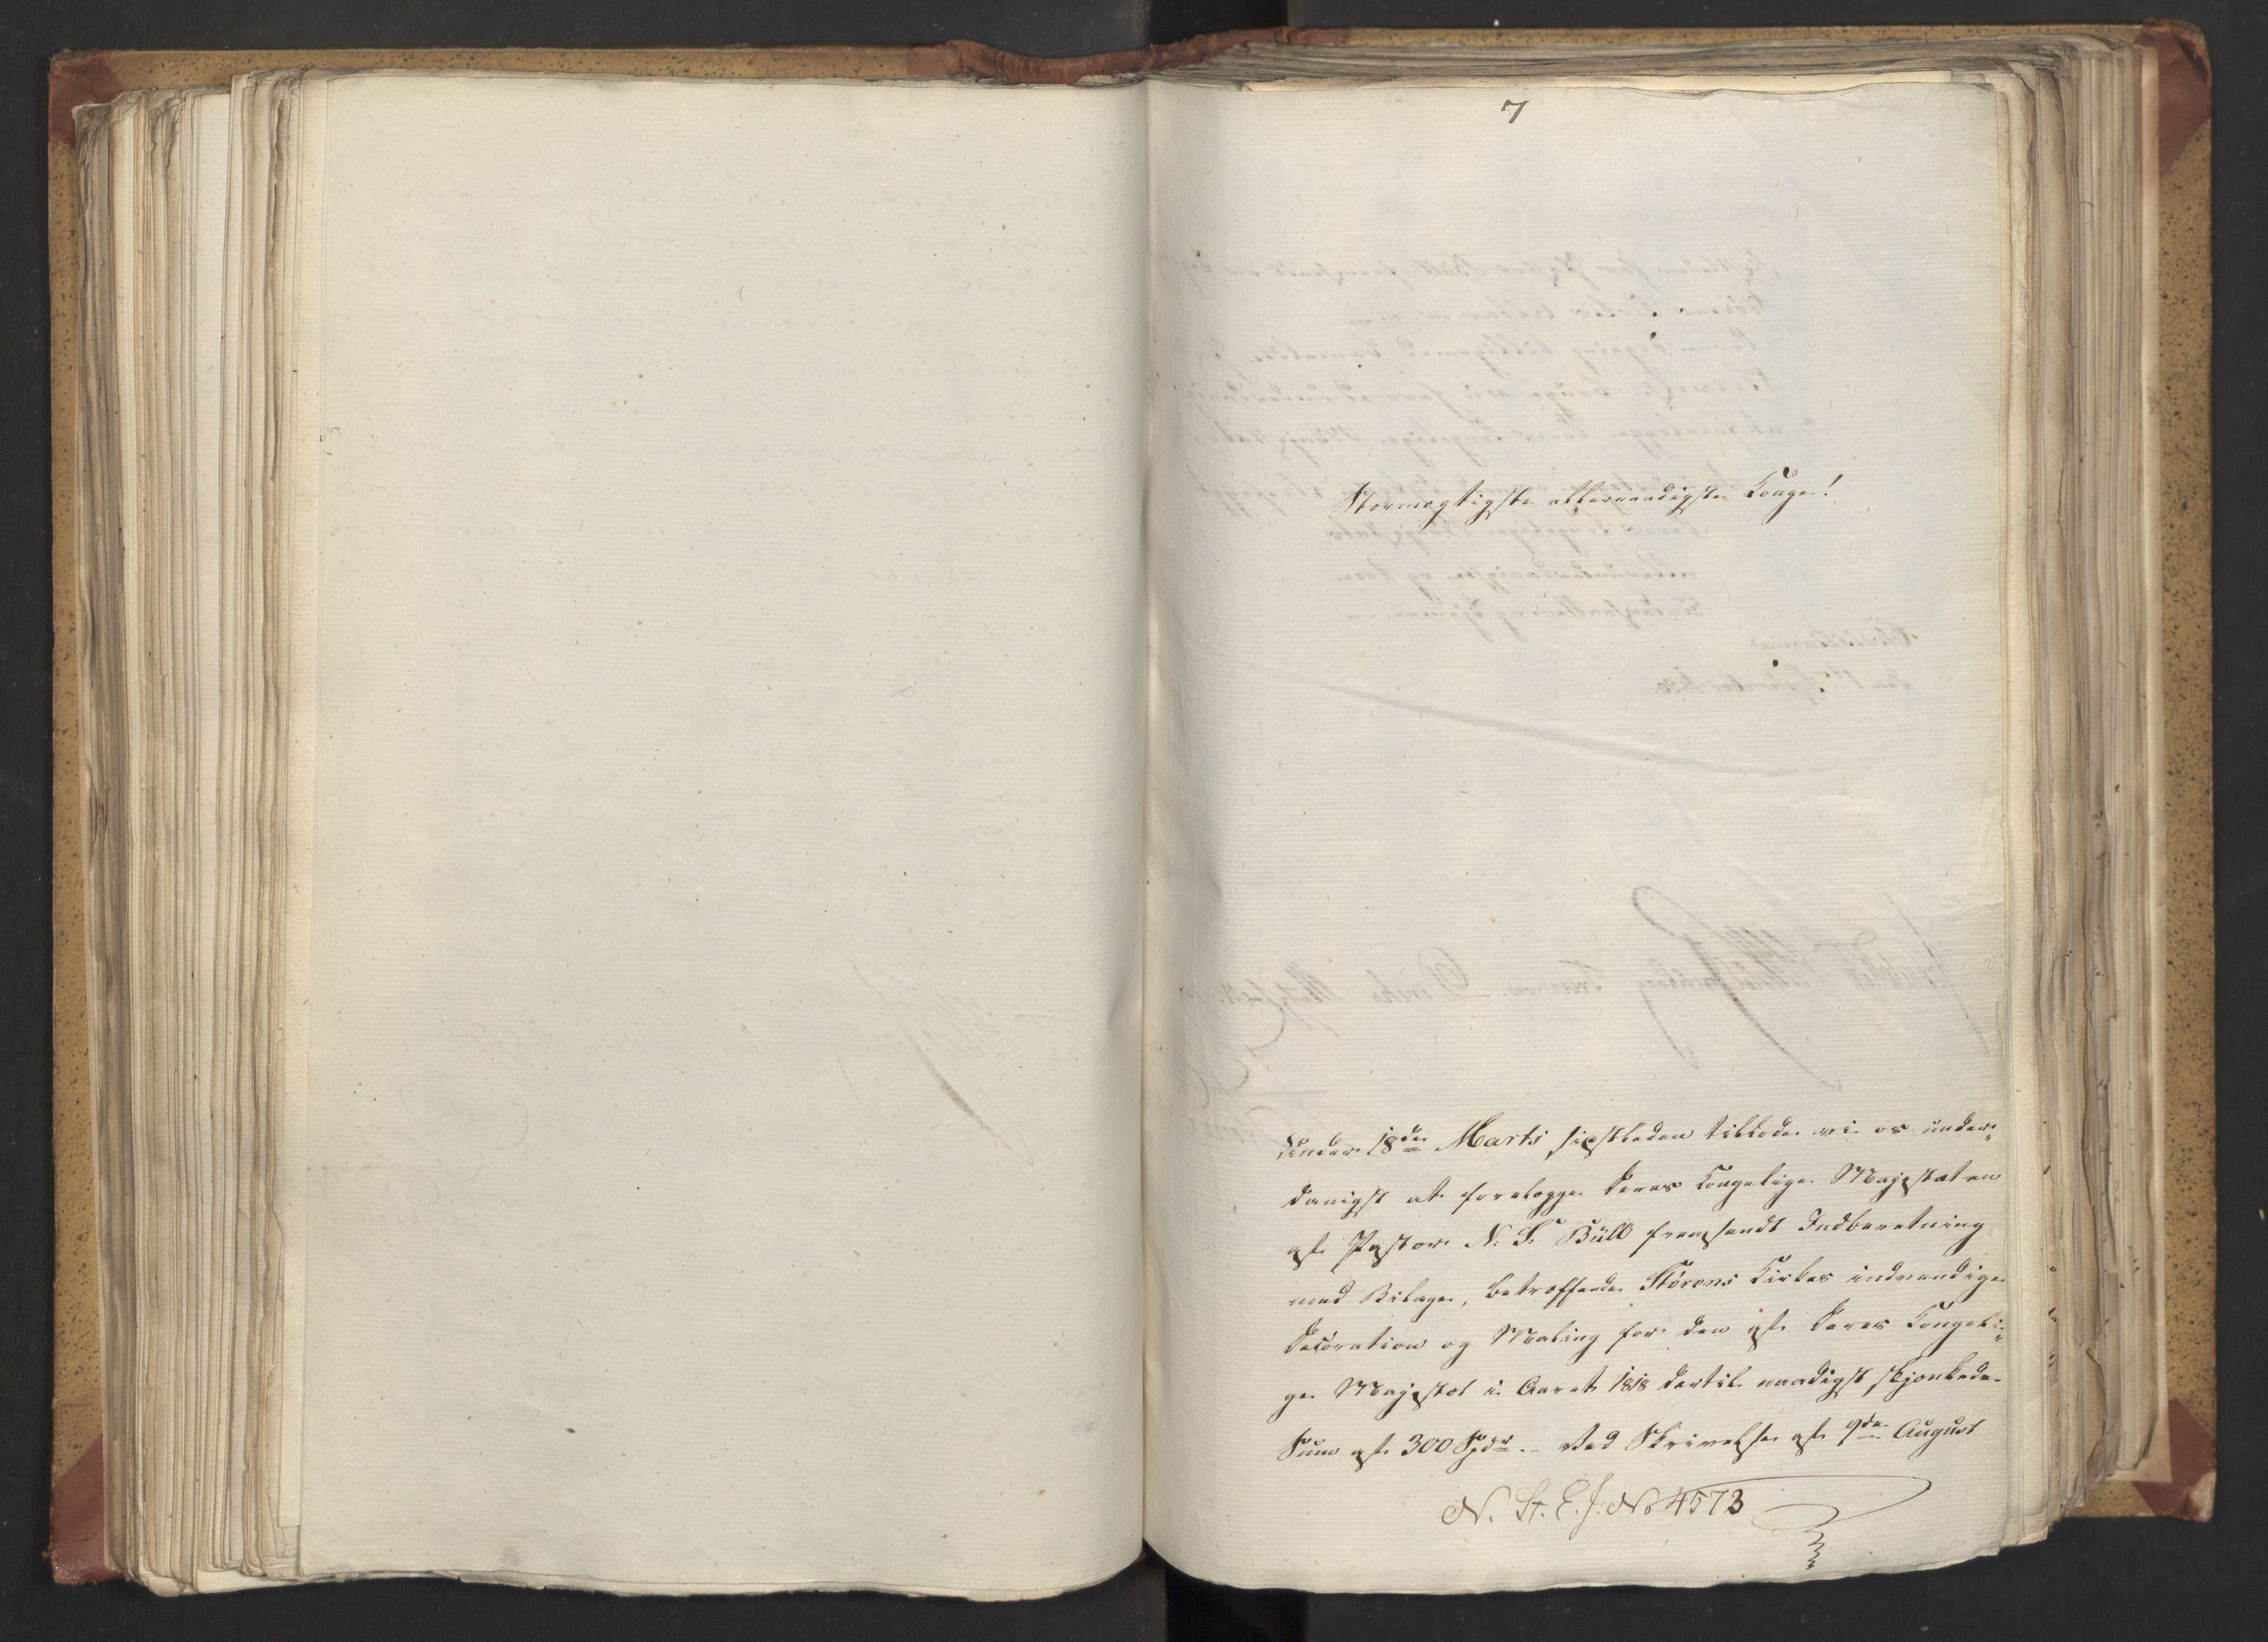 7
Stormægtigste allernaadigste Konge!
Under 18de Marts sidstleden tillode vi os under-
danigst at forelægge Deres Kongelige Majestæt en
af Pastor N. S. Büll fremsendt Indberetning
med Bilage, betræffende Störens Kirkes indvendige
Decoration og Maling for den af Deres Kongeli-
ge Majestæt i Aaret 1818 dertil naadigst skjænkede
Sum af 300 Spdr. – Ved Skrivelse af 9de August
N. St. E. J. No 4573